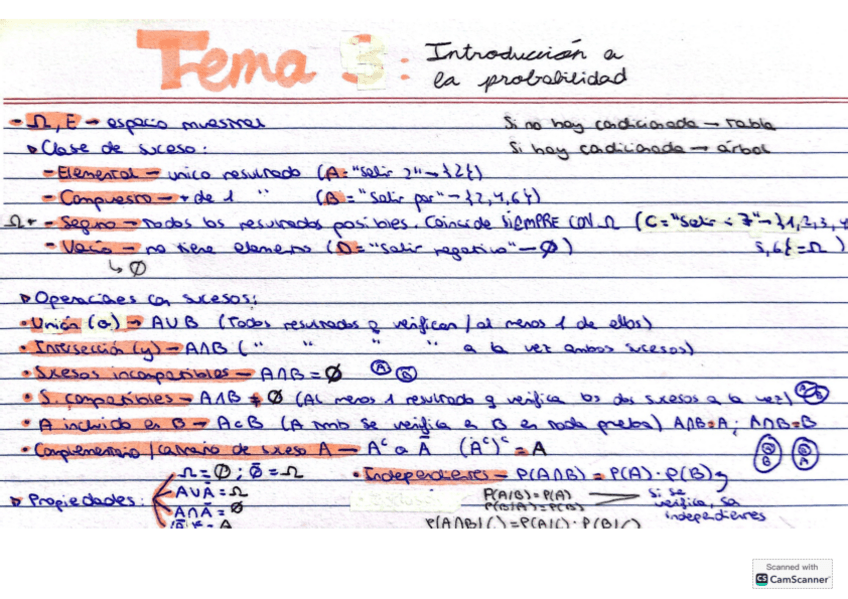 Tema 3: Introducción a
la probabilidad
- Ω, E → espacio muestral
Si no hay condicionada → tabla
▷ Clase de suceso:
Si hay condicionada → árbol
- Elemental → unico resultado (A = "Salir 2" → {2})
- Compuesto → + de 1 " (B = "Salir par" → {2,4,6})
Ω ← - Seguro → todos los resultados posibles. Coincide SIEMPRE CON Ω (C = "Salir < 7" → {1,2,3,4
5,6} = Ω)
- Vacio → no tiene elementos (D = "Salir negativo" → Ø)
↳ Ø
▷ Operaciones con sucesos:
• Unión (o) → A∪B (Todos resultados q verifican / al menos 1 de ellos)
• Intersección (y) → A∩B ( " " " " a la vez ambos sucesos)
• Sucesos incompatibles → A∩B = Ø Ⓐ Ⓑ
• S. compatibles → A∩B ≠ Ø (Al menos 1 resultado q verifica los dos sucesos a la vez)
• A incluido en B → A⊂B (A tmb se verifica en B en toda prueba) A∩B=A; A∩B=B
A B
B A
• Complementario / contrario de suceso A → Aᶜ o Ā (Aᶜ)ᶜ = A
Ω̄ = Ø ; Ø̄ = Ω
• Independientes → P(A∩B) = P(A) · P(B)
▷ Propiedades:
A∪Ā = Ω
A∩Ā = Ø
P(A/B) = P(A)
P(B/A) = P(B)
Si se
verifica, son
independientes
P(A∩B/C) = P(A/C) · P(B/C)
Scanned with
CS CamScanner